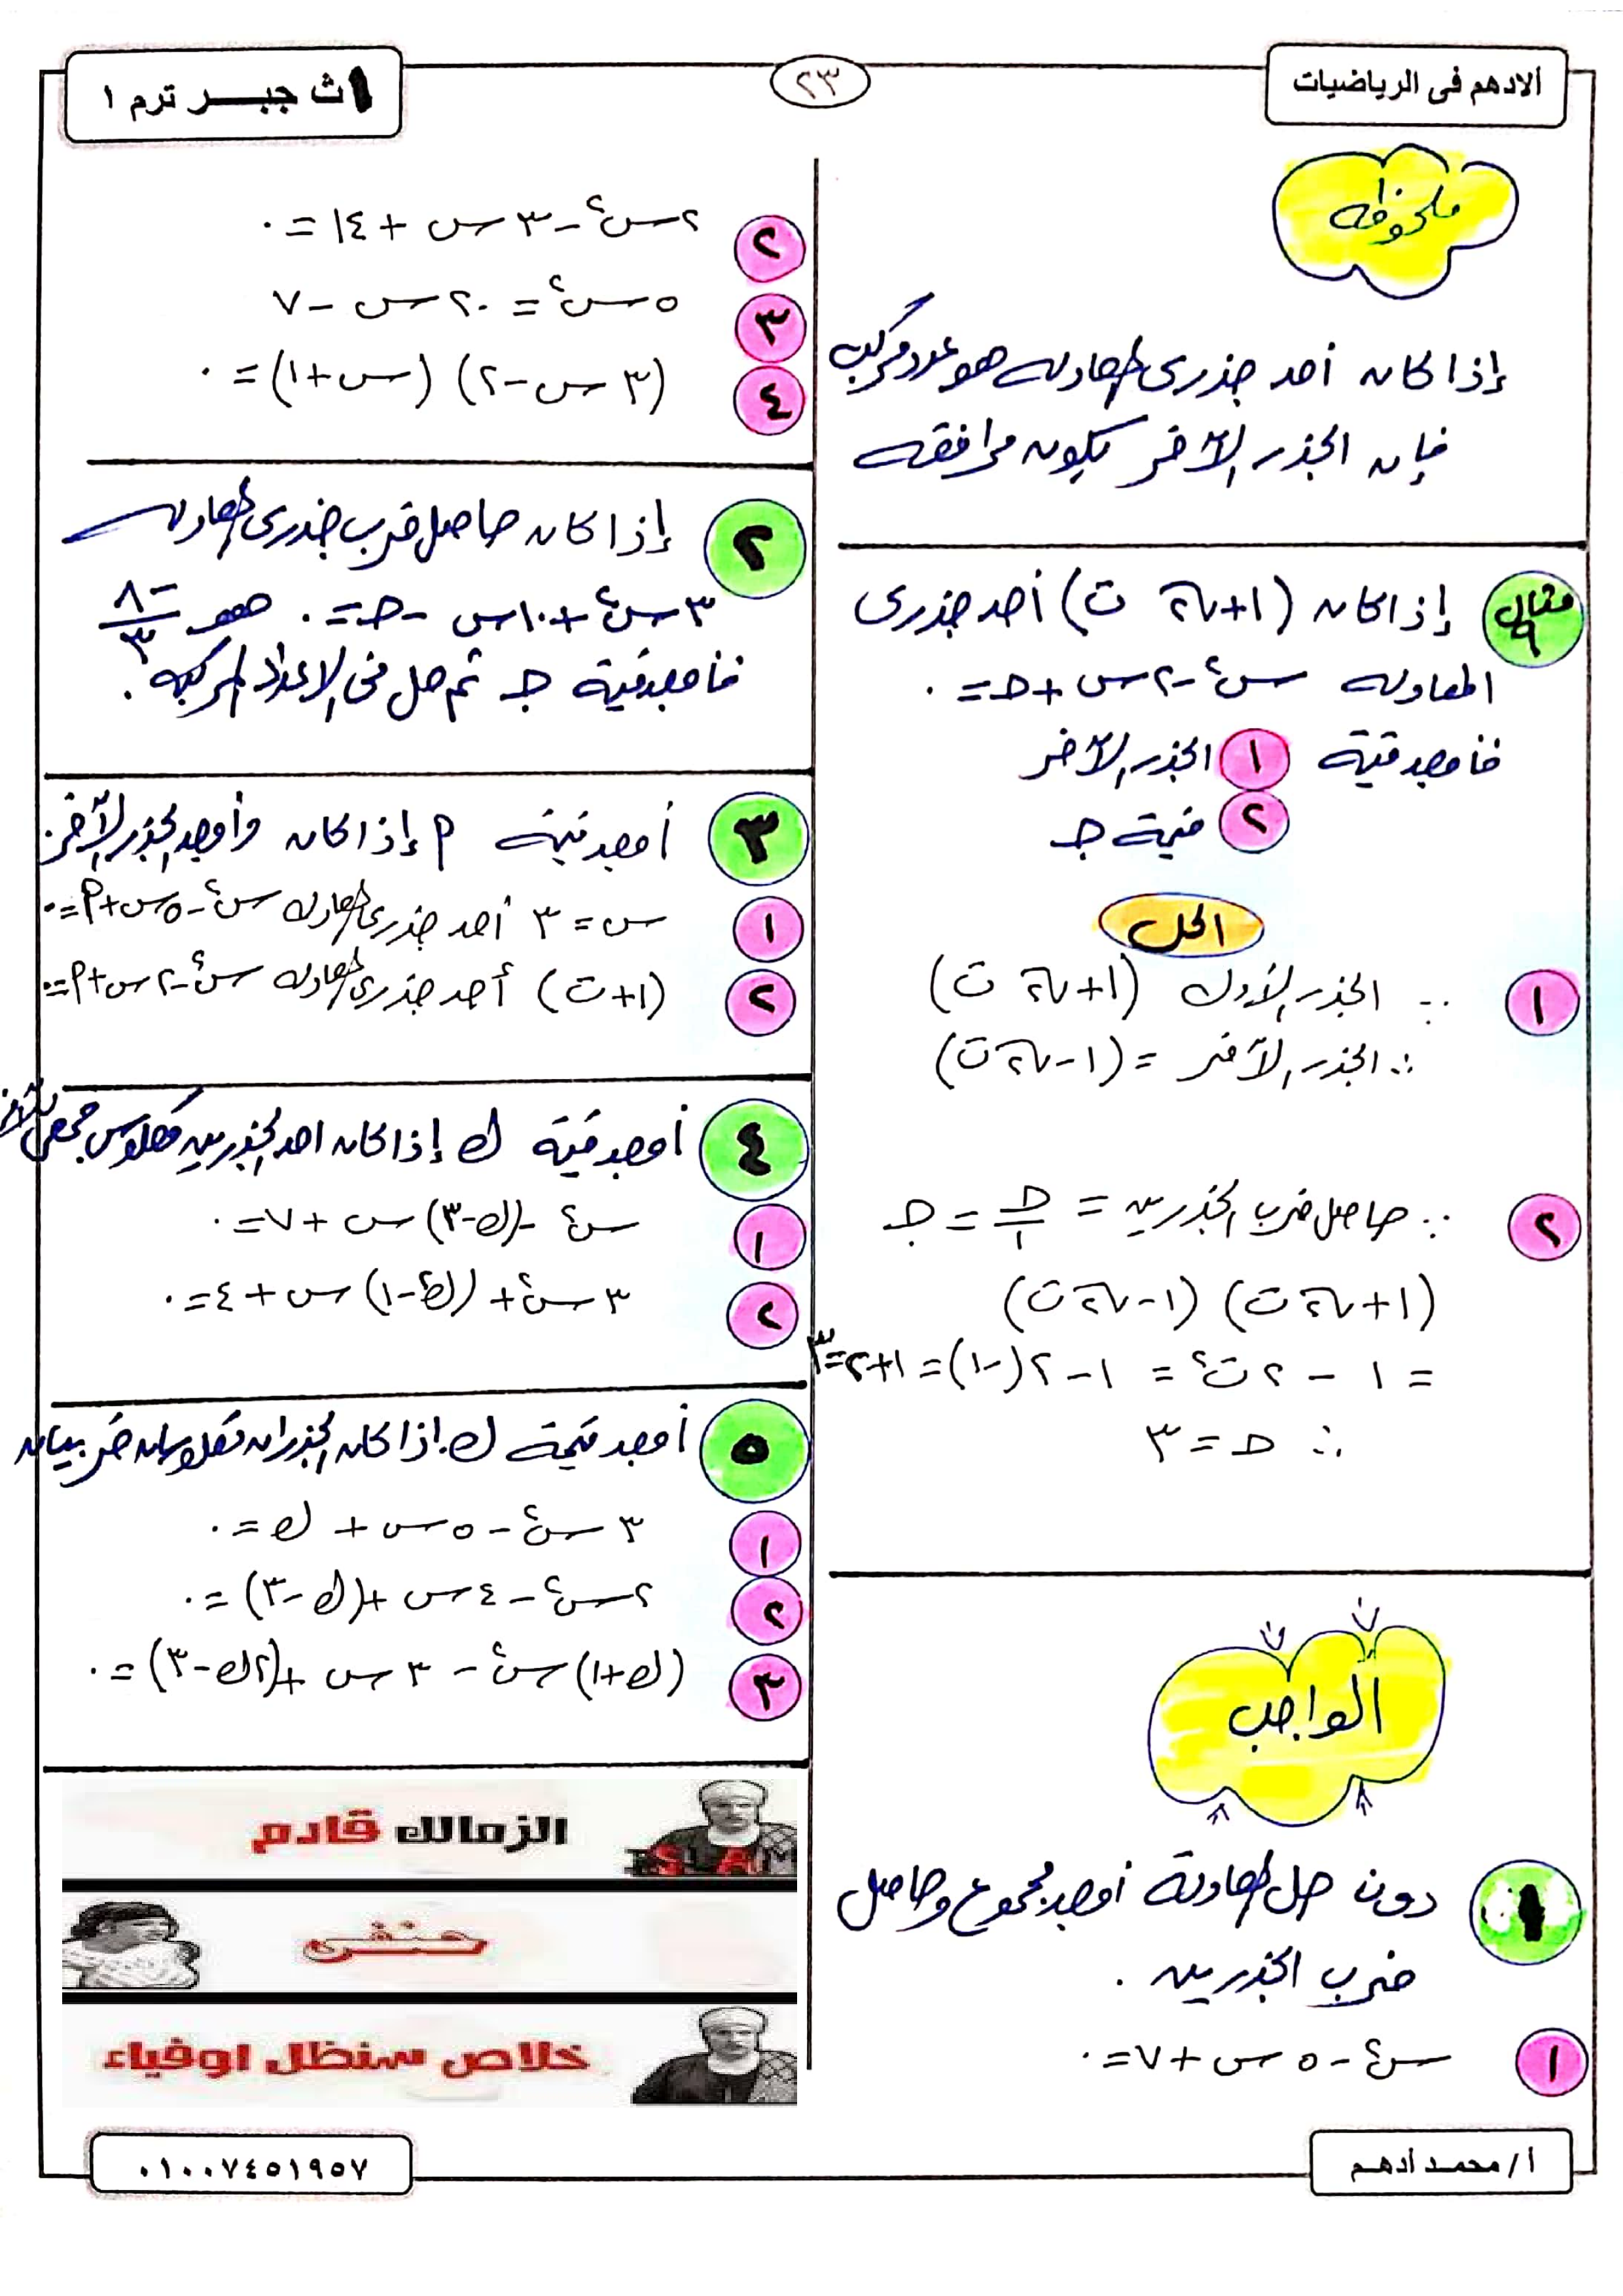 الادهم فى الرياضيات
٢٣
١ث جبــر ترم ١
ملحوظة
إذا كان أحد جذرى المعادلة هو عدد مركب
فإن الجذر الآخر يكون مرافقه
مثال ٩
إذا كان (١+√٢ ت) أحد جذرى
المعادلة س٢-٢س+جـ=٠
فأوجد قيمة ١ الجذر الآخر
٢ قيمة جـ
الحل
١ ∵ الجذر الأول (١+√٢ ت)
∴ الجذر الآخر = (١-√٢ ت)
٢ ∵ حاصل ضرب الجذرين = جـ/١ = جـ
(١+√٢ ت) (١-√٢ ت)
= ١ - ٢ت٢ = ١-٢(-١)=١+٢=٣
∴ جـ = ٣
الواجب
١ دون حل المعادلة أوجد مجموع وحاصل
ضرب الجذرين .
١ س٢-٥س+٧=٠
٢ ٢س٢-٣س+١٤=٠
٣ ٥س٢=٢٠س-٧
٤ (٣س-٢) (س+١)=٠
٢ إذا كان حاصل ضرب جذرى المعادلة
٣س٢+١٠س-جـ=٠ هو -٨/٣
فأوجد قيمة جـ ثم حل فى الاعداد المركبة .
٣ أوجد قيمة م إذا كان وأوجد الجذر الآخر.
١ س=٣ أحد جذرى المعادلة س٢-٥س+م=٠
٢ (١+ت) أحد جذرى المعادلة س٢-٢س+م=٠
٤ أوجد قيمة ك إذا كان احد الجذرين معكوس جمعى للآخر
١ س٢-(ك-٣)س+٧=٠
٢ ٣س٢+(ك٢-١)س+٤=٠
٥ أوجد قيمة ك.اذا كان الجذران معكوسان ضربيان
١ ٣س٢-٥س+ك=٠
٢ ٢س٢-٤س+(ك-٣)=٠
٣ (ك+١)س٢-٣س+(٢ك-٣)=٠
الزمالك قادم
حنفى
خلاص سنظل اوفياء
أ/محمد أدهم
٠١٠٠٧٤٥١٩٥٧